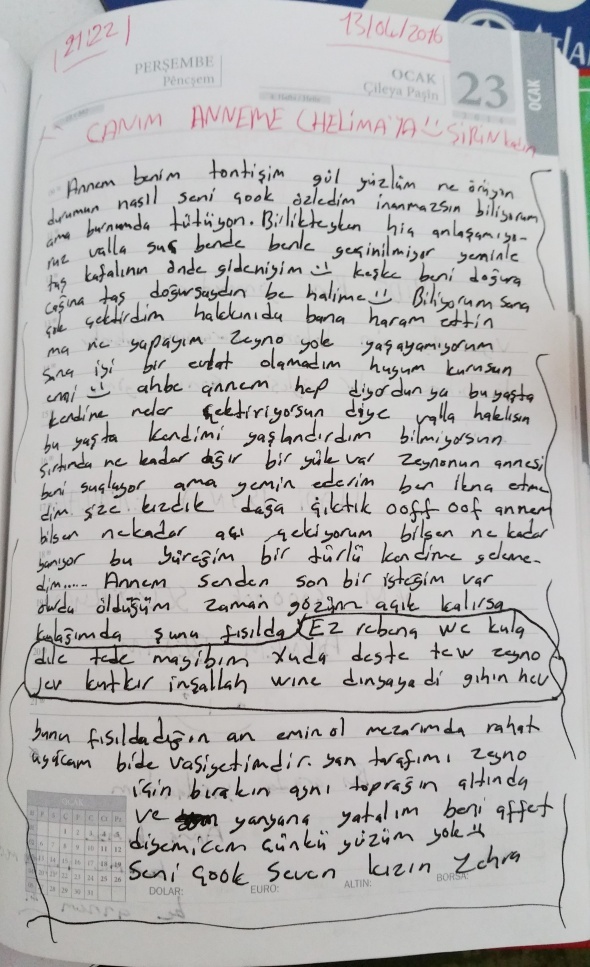 [21:22]
13/04/2016
PERŞEMBE
Pêncşem
OCAK
Çileya Paşin
23
OCAK
CANIM ANNEME (HELİMA'YA ŞİRİN kadın
Annem benim tontişim gül yüzlüm ne
durumun nasıl seni çook özledim inanmazsın biliyorum
ama burnumda tütüyon. Birlikteyken hiç anlaşamıyo-
ruz valla suç bende benle geçinilmiyor yeminle
taş kafalının önde gideniyim keşke beni doğura
cağına taş doğursaydın be halime Biliyorum sana
çok çektirdim hakkınıda bana haram ettin
ma ne yapayım Zeyno yok yaşayamıyorum
sana iyi bir evlat olamadım huyum kurusun
emi ahbe annem hep diyordun ya bu yaşta
kendine neler çektiriyorsun diye valla haklısın
bu yaşta kendimi yaşlandırdım bilmiyorsun
sırtımda ne kadar ağır bir yük var Zeynonun annesi
beni suçluyor ama yemin ederim ben ikna etme
dim size kızdık dağa çıktık ooff oof annem
bilsen nekadar acı çekiyorum bilsen ne kadar
yanıyor bu yüreğim bir türlü kendime geleme-
dim..... Annem senden son bir isteğim var
ourda öldüğüm zaman gözüm açık kalırsa
kulağımda şunu fısılda (Ez rebena we kula
dile tede maşibım xuda deste tew zeyno
jev kutkır inşallah wine dınyaya di gihın hev
bunu fısıldadığın an emin ol mezarımda rahat
uyucam bide vasiyetimdir. yan tarafımı zeyno
için bırakın aynı toprağın altında
ve yanyana yatalım beni affet
diyemicem çünkü yüzüm yok
Seni çook seven kızın Zehra
DOLAR:
EURO:
ALTIN:
BORSA: